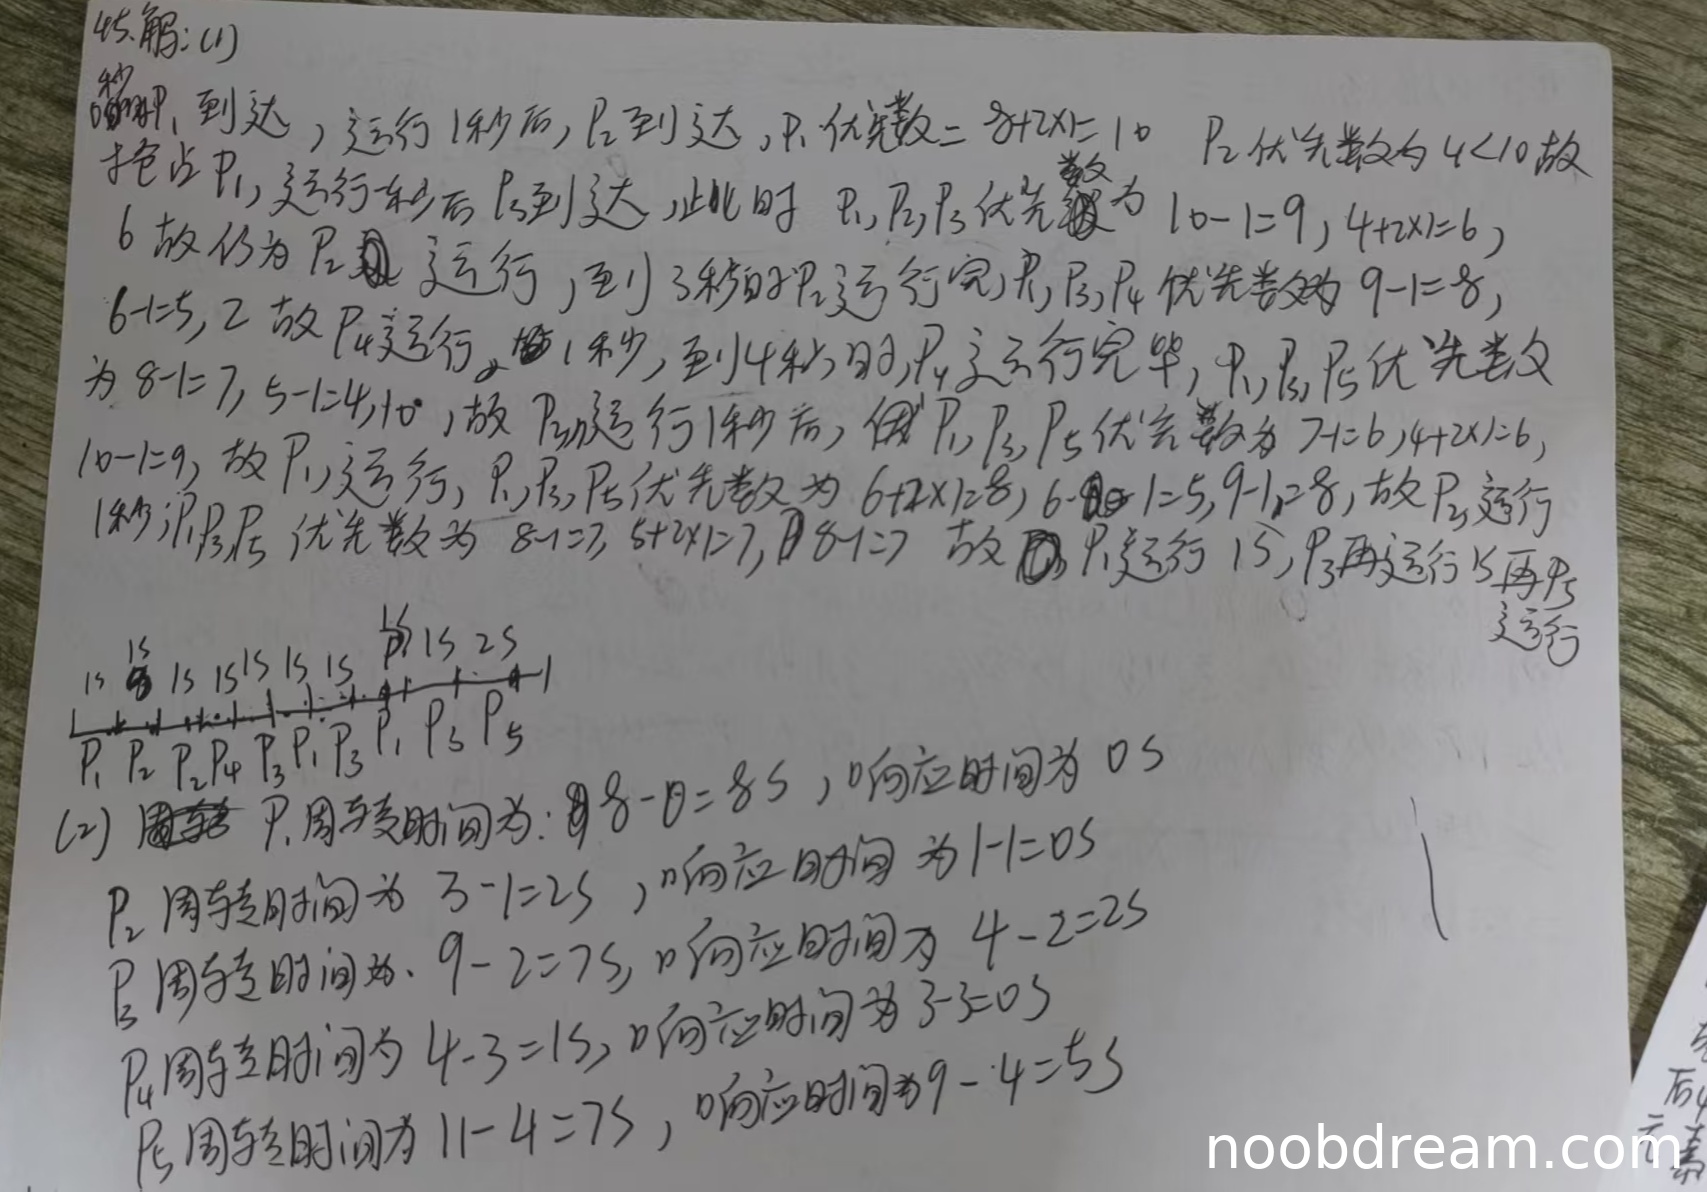 45.解:(1)
0秒时P₁到达,运行1秒后,P₂到达,P₁优先数=8+2×1=10 P₂优先数为4<10故
抢占P₁,运行一秒后P₃到达,此时 P₁,P₂,P₃优先数为10-1=9,4+2×1=6,
6故仍为P₂运行,到3秒时P₂运行完,P₁,P₃,P₄优先数为9-1=8,
6-1=5,2故P₄运行1秒,到4秒时,P₄运行完毕,P₁,P₃,P₅优先数
为8-1=7,5-1=4,10,故P₃运行1秒后,P₁,P₃,P₅优先数为7-1=6,4+2×1=6,
10-1=9,故P₁运行,P₁,P₃,P₅优先数为6+2×1=8,6-1=5,9-1=8,故P₃运行
1秒,P₁P₃P₅优先数为8-1=7,5+2×1=7,8-1=7 故P₁运行1S,P₃再运行1S再P₅
运行
1S 1S 1S 1S 1S 1S 1S 1S 1S 2S
P₁ P₂ P₂ P₄ P₃ P₁ P₃ P₁ P₃ P₅
(2) P₁周转时间为:8-0=8S,响应时间为0S
P₂周转时间为3-1=2S,响应时间为1-1=0S
P₃周转时间为.9-2=7S,响应时间为4-2=2S
P₄周转时间为4-3=1S,响应时间为3-3=0S
P₅周转时间为11-4=7S,响应时间为9-4=5S
后
元素
noobdream.com